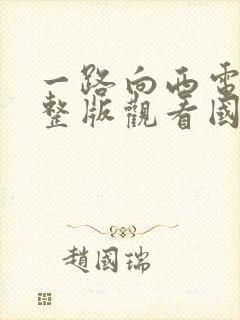 一路向西電
整版觀看國
趙國瑞